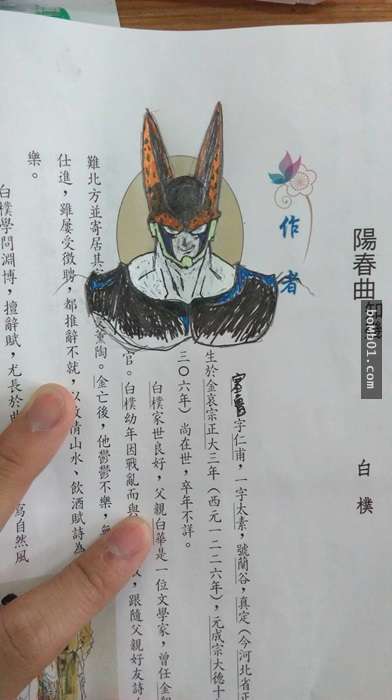 陽春曲
白樸
作者
賽魯字仁甫，一字太素，號蘭谷，真定（今河北省正
生於金哀宗正大三年（西元一二二六年），元成宗大德十
三〇六年）尚在世，卒年不詳。
白樸家世良好，父親白華是一位文學家，曾任金
官。白樸幼年因戰亂而與，跟隨父親好友詩
難北方並寄居其薰陶。金亡後，他鬱鬱不樂，無
仕進，雖屢受徵聘，都推辭不就，以放情山水、飲酒賦詩為
樂。
白樸學問淵博，擅辭賦，尤長於寫自然風
bomb01.com